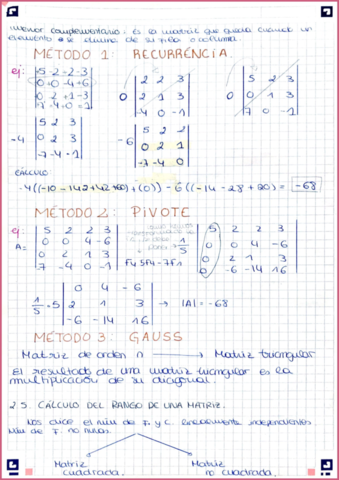 Menor complementario: Es la matriz que queda cuando un
elemento se elimina de su fila o columna.
MÉTODO 1: RECURRÉNCIA.
ej: |5 2 2 3|
|0 0 4 -6|
|0 2 1 3|
|7 -4 0 -1|
0 |2 2 3|
|2 1 3|
|-4 0 -1|
0 |5 2 3|
|0 1 3|
|7 0 -1|
-4 |5 2 3|
|0 2 3|
|7 -4 -1|
-6 |5 2 2|
|0 2 1|
|7 -4 0|
CÁLCULO
= -68
MÉTODO 2: PIVOTE
ej: A= |5 2 2 3|
|0 0 4 -6|
|0 2 1 3|
|7 -4 0 -1|
1/5
F4 5F4-7F1
|5 2 2 3|
|0 0 4 -6|
|0 2 1 3|
|0 -6 -14 16|
1/5 · 5 |0 4 -6|
|2 1 3|
|-6 -14 16|
→ |A| = -68
MÉTODO 3: GAUSS
Matriz de orden n → Matriz triangular
El resultado de una matriz triangular es la
multiplicación de su diagonal.
2.5. CÁLCULO DEL RANGO DE UNA MATRIZ.
Nos dice el núm de F. y C. linealmente independientes.
Núm de F. no nulas.
Matriz cuadrada.
Matriz no cuadrada.